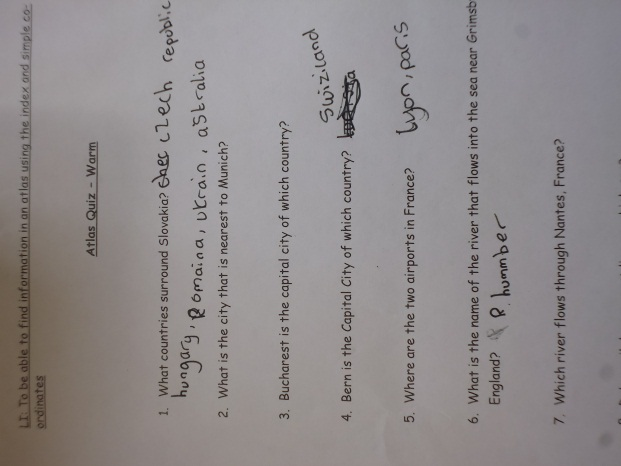 LI: To be able to find information in an atlas using the index and simple co-
ordinates
Atlas Quiz - Warm
1. What countries surround Slovakia? czech republic
hungary, Romaina, Ukrain, aStralia
2. What is the city that is nearest to Munich?
3. Bucharest is the capital city of which country?
Swiziland
4. Bern is the Capital City of which country?
5. Where are the two airports in France? Lyon, paris
6. What is the name of the river that flows into the sea near Grimsb
England? R. hummber
7. Which river flows through Nantes, France?